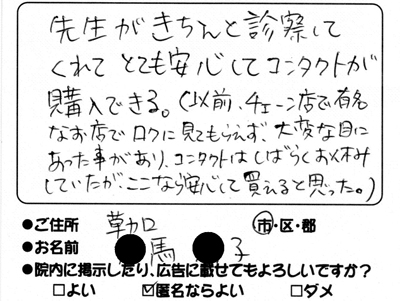 先生がきちんと診察して
くれて とても安心してコンタクトが
購入できる。(以前、チェーン店で有名
なお店でロクに見てもらえず、大変な目に
あった事があり、コンタクトはしばらくお休み
していたが、ここなら安心して買えると思った。)
●ご住所 草加 市・区・郡
●お名前 馬 子
●院内に掲示したり、広告に載せてもよろしいですか?
□よい ☑匿名ならよい □ダメ